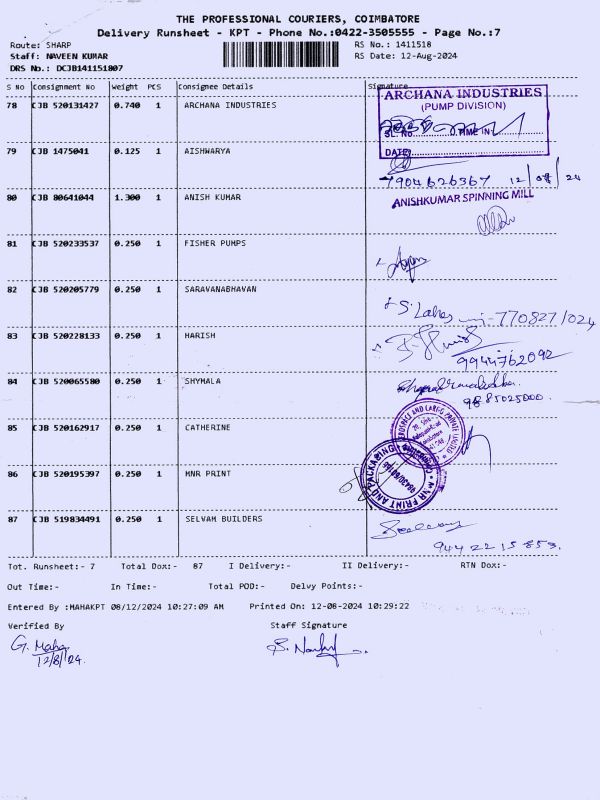 THE PROFESSIONAL COURIERS, COIMBATORE
Delivery Runsheet - KPT - Phone No.:0422-3505555 - Page No.:7
Route: SHARP
RS No.: 1411518
Staff: NAVEEN KUMAR
RS Date: 12-Aug-2024
DRS No.: DCJB141151807
S No Consignment No Weight PCS Consignee Details Signature
78 CJB 520131427 0.740 1 ARCHANA INDUSTRIES
ARCHANA INDUSTRIES
(PUMP DIVISION)
SL. No. TIME IN
DATE
79 CJB 1475041 0.125 1 AISHWARYA
7904626367 12/08/24
80 CJB 80641044 1.300 1 ANISH KUMAR
ANISHKUMAR SPINNING MILL
81 CJB 520233537 0.250 1 FISHER PUMPS
82 CJB 520205779 0.250 1 SARAVANABHAVAN
770827/024
83 CJB 520228133 0.250 1 HARISH
9944762092
84 CJB 520065580 0.250 1 SHYMALA
9885025000.
85 CJB 520162917 0.250 1 CATHERINE
86 CJB 520195397 0.250 1 MNR PRINT
PRINT AND PACKAGING
87 CJB 519834491 0.250 1 SELVAM BUILDERS
944 22 15 853.
Tot. Runsheet:- 7 Total Dox:- 87 I Delivery:- II Delivery:- RTN Dox:-
Out Time:- In Time:- Total POD:- Delvy Points:-
Entered By :MAHAKPT 08/12/2024 10:27:09 AM Printed On: 12-08-2024 10:29:22
Verified By Staff Signature
G. Maha
12/8/24.